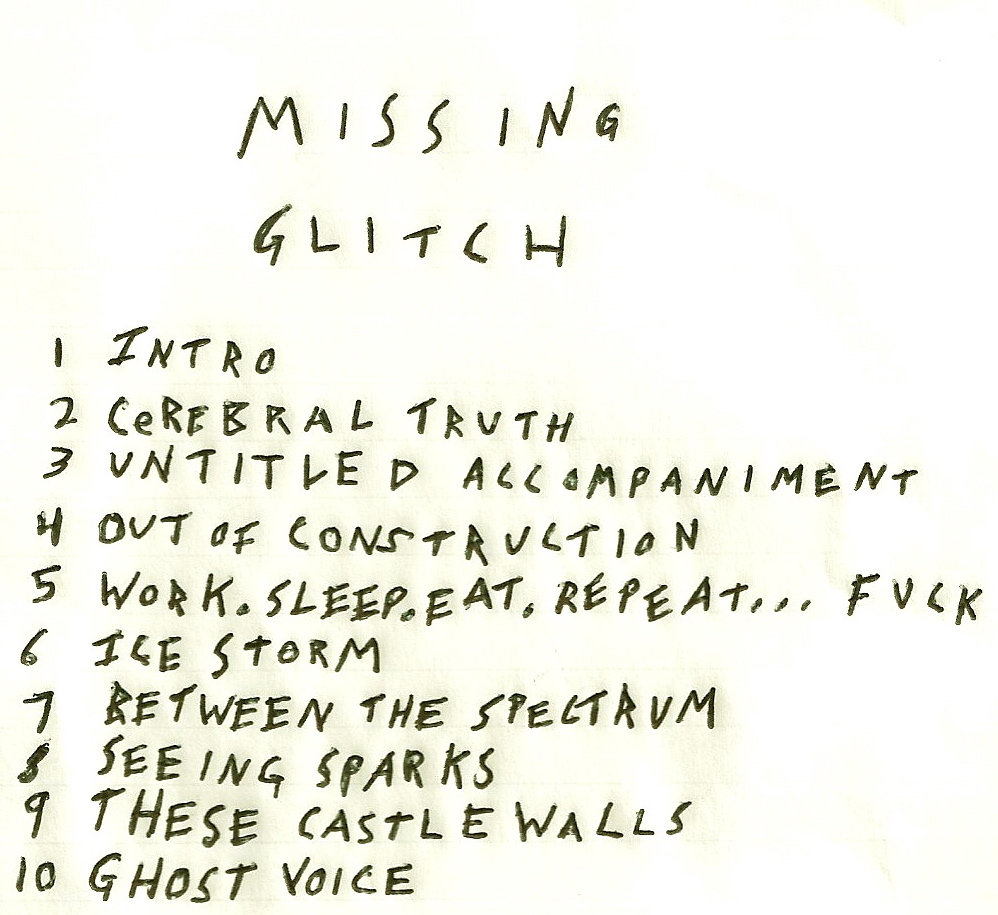 MISSING
GLITCH
1 INTRO
2 CeREBRAL TRUTH
3 UNTITLED ACCOMPANIMENT
4 OUT OF CONSTRUCTION
5 WORK.SLEEP.EAT.REPEAT... FUCK
6 ICE STORM
7 BETWEEN THE SPECTRUM
8 SEEING SPARKS
9 THESE CASTLE WALLS
10 GHOST VOICE